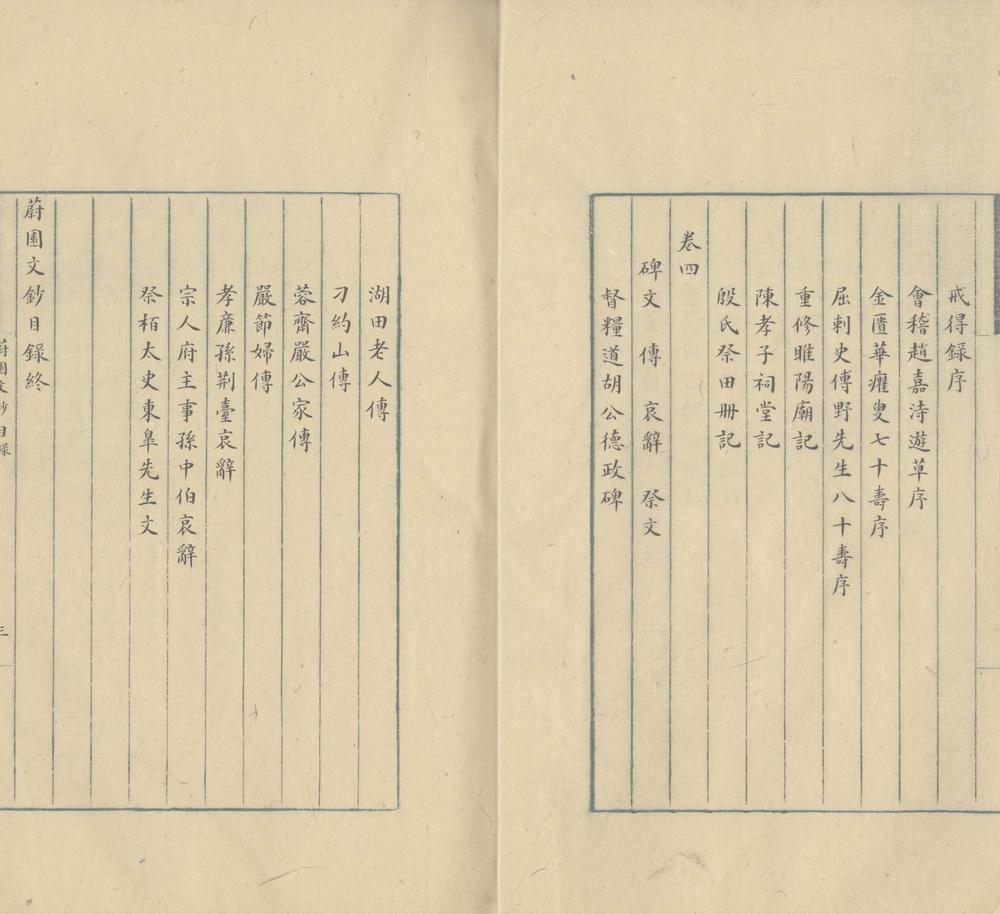 戒得錄序
會稽趙嘉洔遊草序
金匱華癯叟七十壽序
屈刺史傅野先生八十壽序
重修睢陽廟記
陳孝子祠堂記
殷氏祭田冊記
卷四
碑文　傳　哀辭　祭文
督糧道胡公德政碑
湖田老人傳
刁約山傳
蓉齋嚴公家傳
嚴節婦傳
孝廉孫荆臺哀辭
宗人府主事孫中伯哀辭
祭栢太史東臯先生文
蔚園文鈔目錄終
蔚園文鈔目錄
三